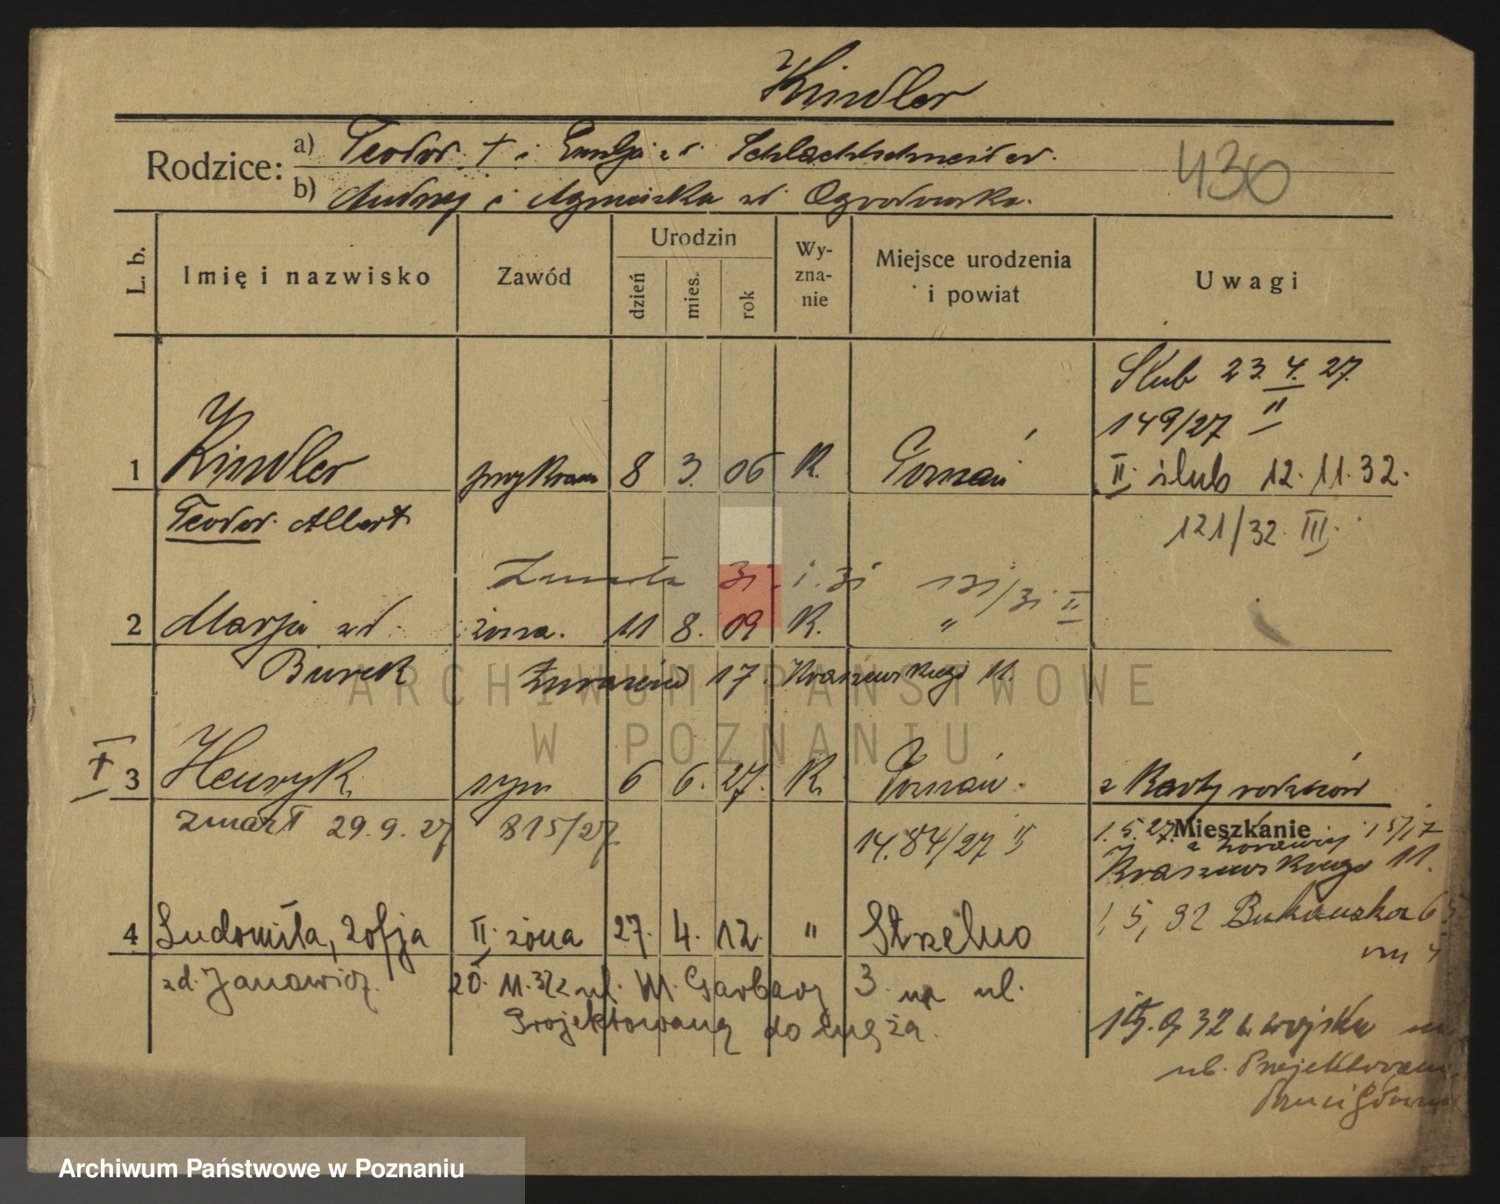 Kindler
Rodzice: a) Teodor † i Emilja zd. Schlachtschneider.
b) Andrzej i Agnieszka zd. Ogrodowska.
430
L. b. Imię i nazwisko Zawód Urodzin dzień mies. rok Wyznanie Miejsce urodzenia i powiat Uwagi
Ślub 23. 4. 27.
149/27 II
1 Kindler 8 3. 06 K. Poznań II. ślub 12. 11. 32.
Teodor Albert 121/32. III.
Zmarła 31. 1. 31 131/31 II
2 Marja zd. żona. 11 8. 09 K. "
Burek Żurawia 17. Kraszewskiego 11.
† 3 Henryk syn 6 6. 27. K. Poznań. z Karty rodziców
zmarł 29. 9. 27 815/27 1484/27 II
Mieszkanie
1. 5. 27. z Żurawiej 15/17
Kraszewskiego 11.
4 Ludomiła, Zofja II. żona 27. 4. 12. " Strzelno 1, 5, 32 Bukowska
zd. Janowicz. 20. 11. 32 z ul. W. Garbary 3. na ul.
Projektowaną do męża.
15. 9 32 z wojska na
ul. Projektowaną
ARCHIWUM PAŃSTWOWE
W POZNANIU
Archiwum Państwowe w Poznaniu